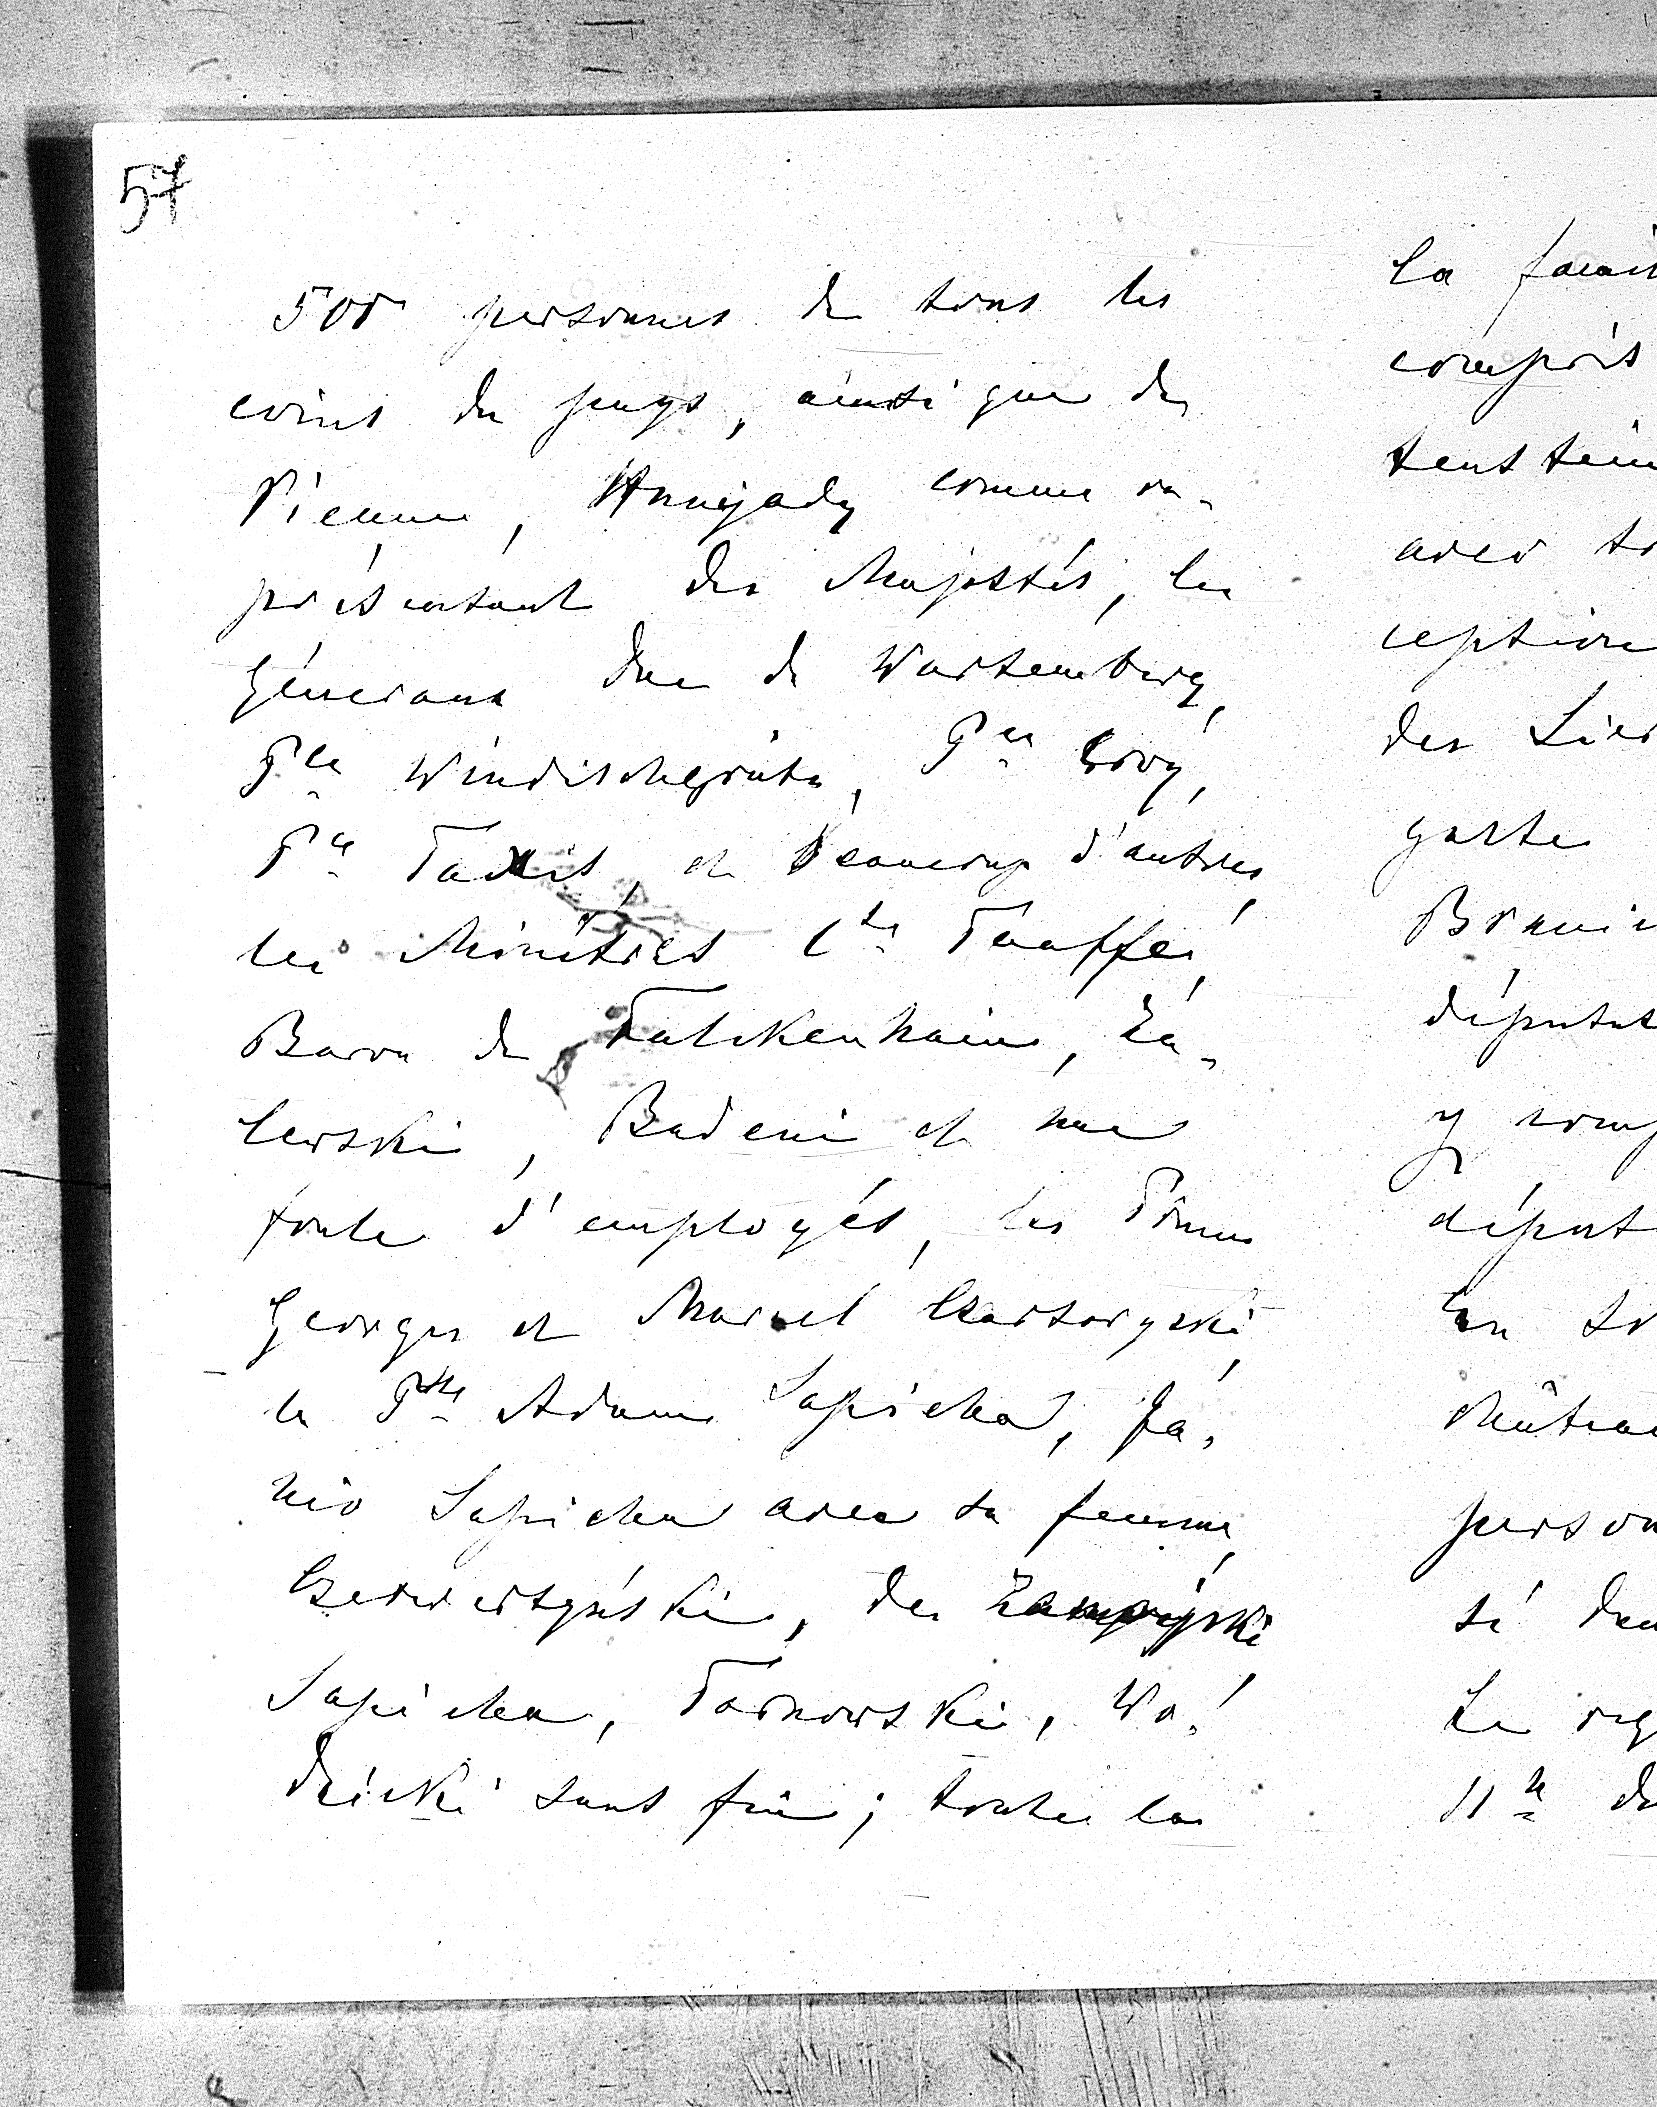 57
500 personnes de tous les
coins du pays, ainsi que de
Vienne, Hunyady comme re-
présentant des Majestés, les
Généraux Duc de Wurtemberg,
Pce Windischgrätz, Pce Croy,
Pce Taxis, et beaucoup d'autres,
les Ministres Cte Taaffe,
Baron de Falkenhain, Za-
lewski, Badeni et une
foule d'employés, les Princes
Georges et Marcel Czartoryski,
la Psse Adam Sapieha, Ja-
nio Sapieha avec sa femme,
Czetwertyński, des Zamoyski
Sapieha, Tarnowski, Wo-
dzicki sans fin; toute la
la
compris
tenstein
avec
ception
des
garte
député
y
déput
En
person
sé
Le
11e